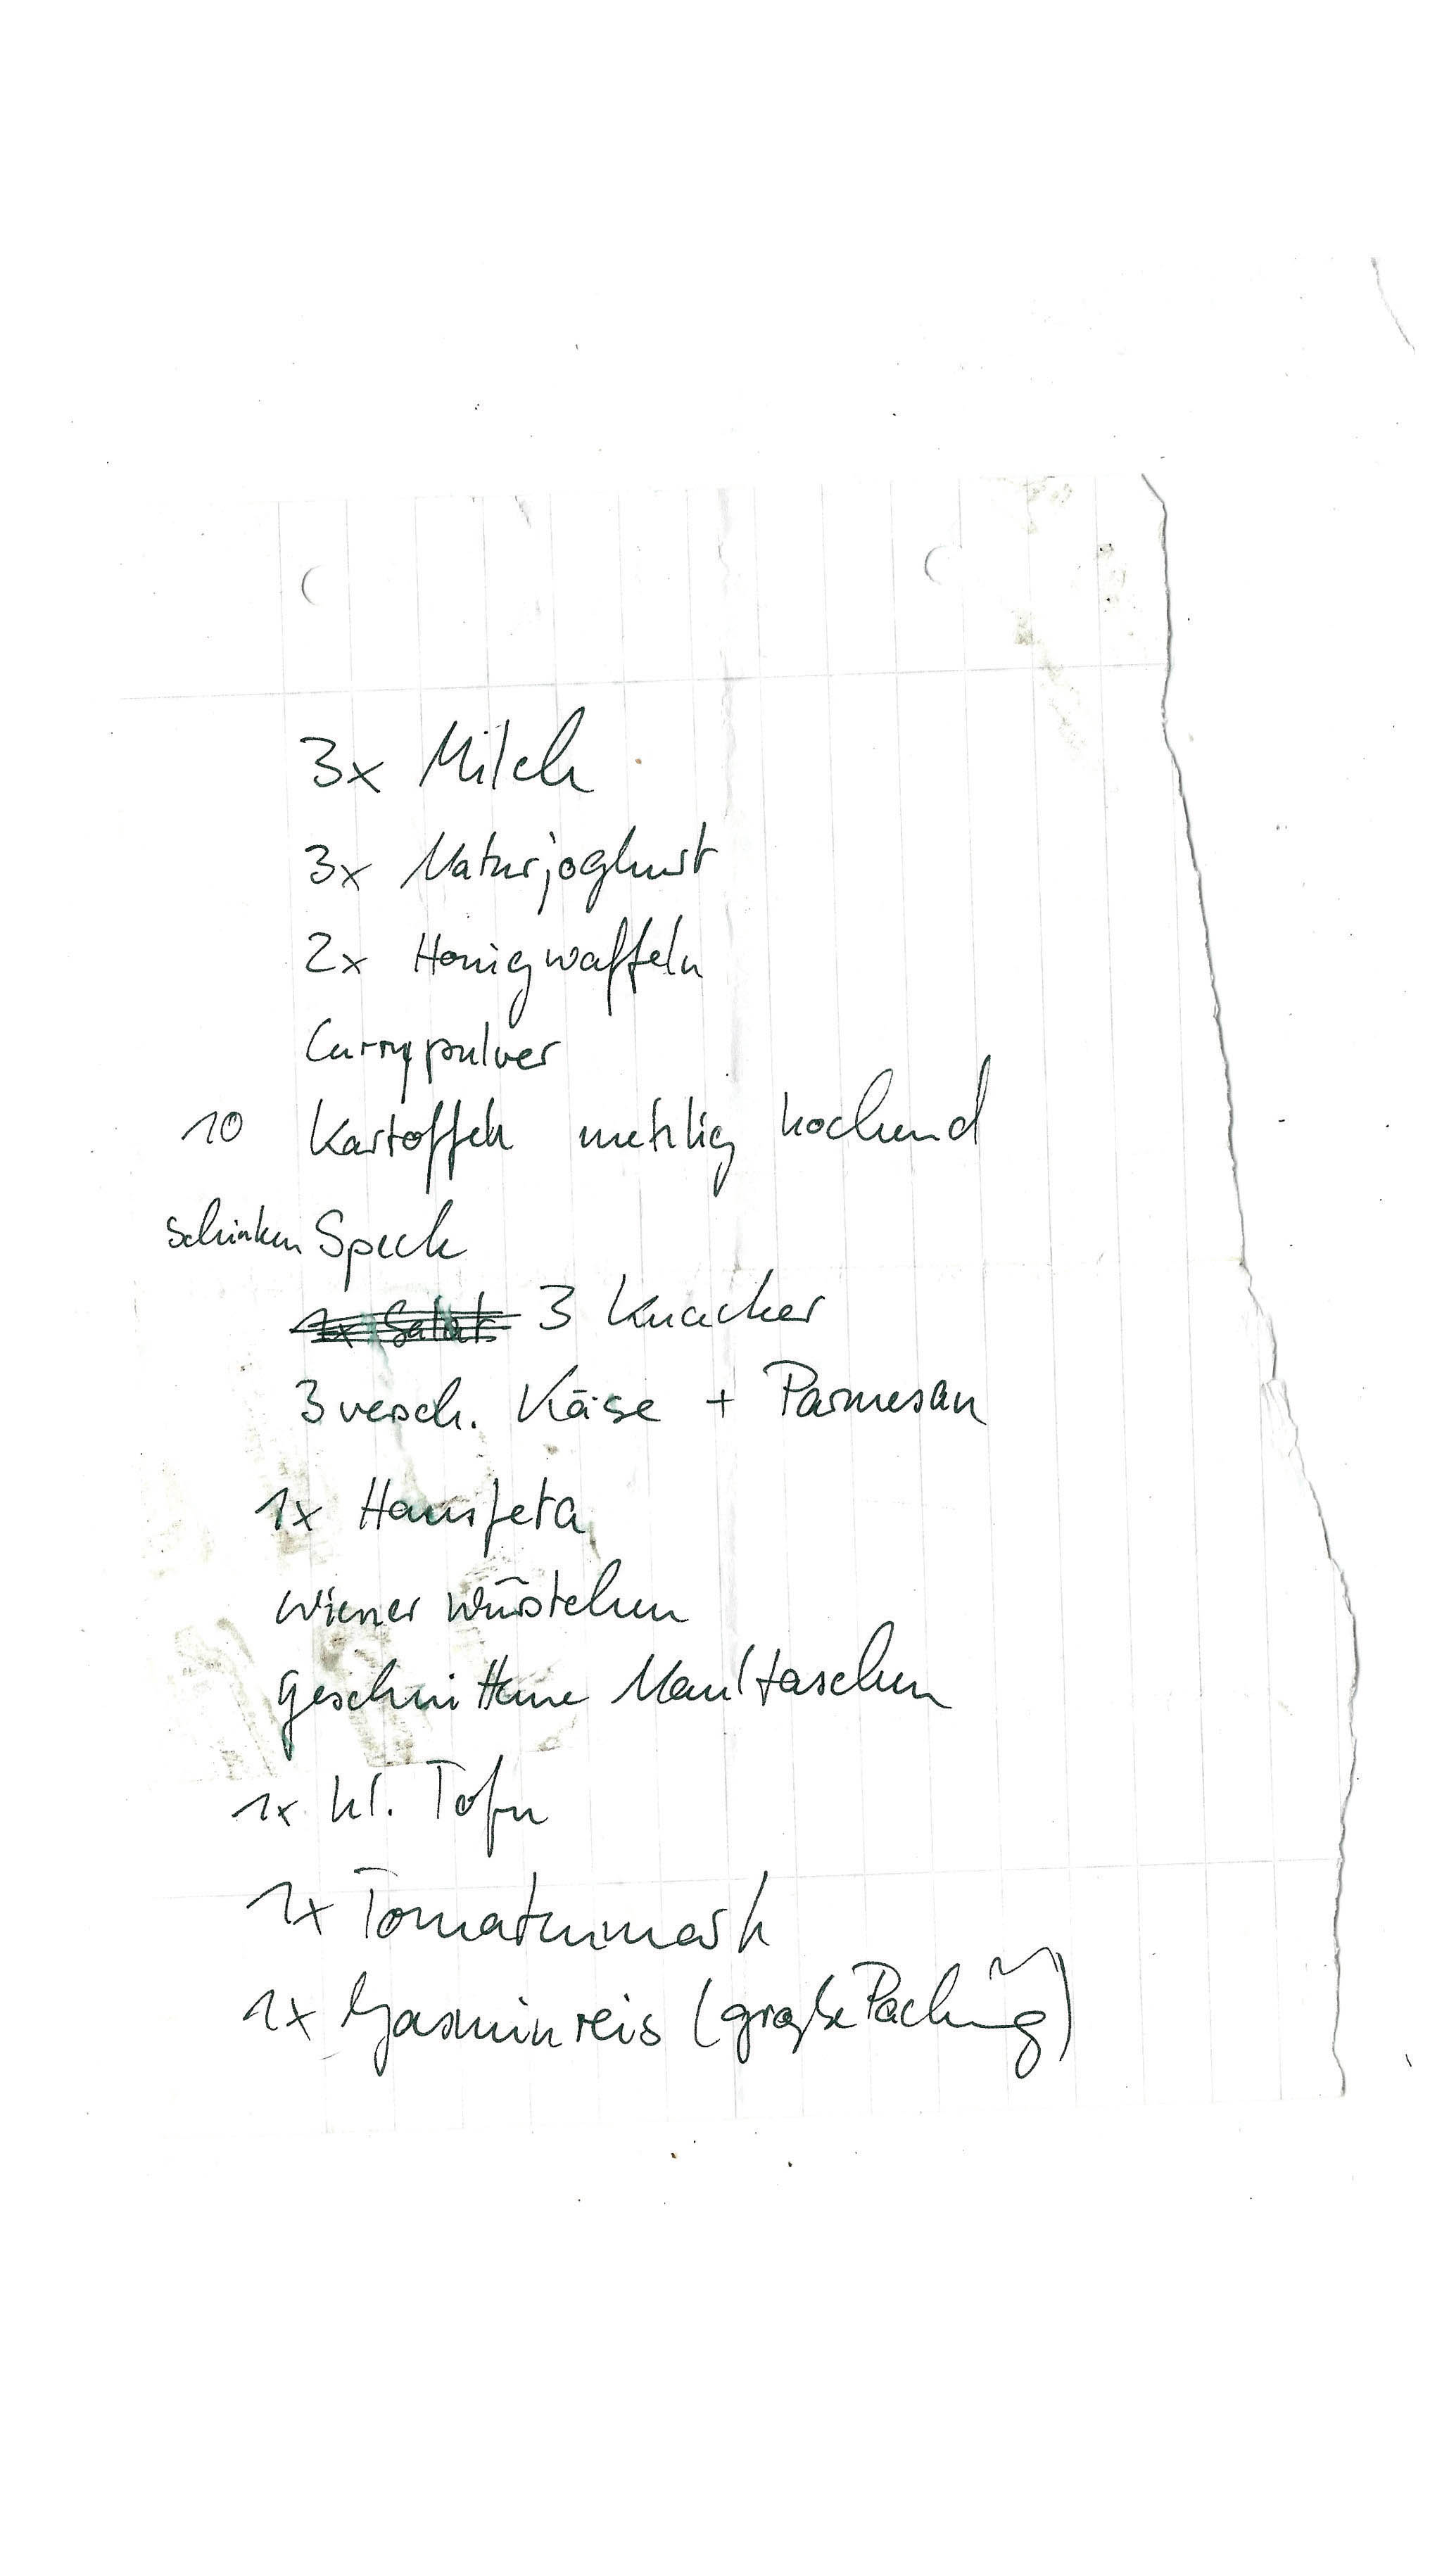 3x Milch
3x Naturjoghurt
2x Honigwaffeln
Currypulver
10 Kartoffeln mehlig kochend
Schinken Speck
1x Salat 3 Knacker
3 versch. Käse + Parmesan
1x Hausfeta
Wiener Würstchen
geschnittene Maultaschen
1x kl. Tofu
1x Tomatenmark
1x Jasminreis (große Packung)